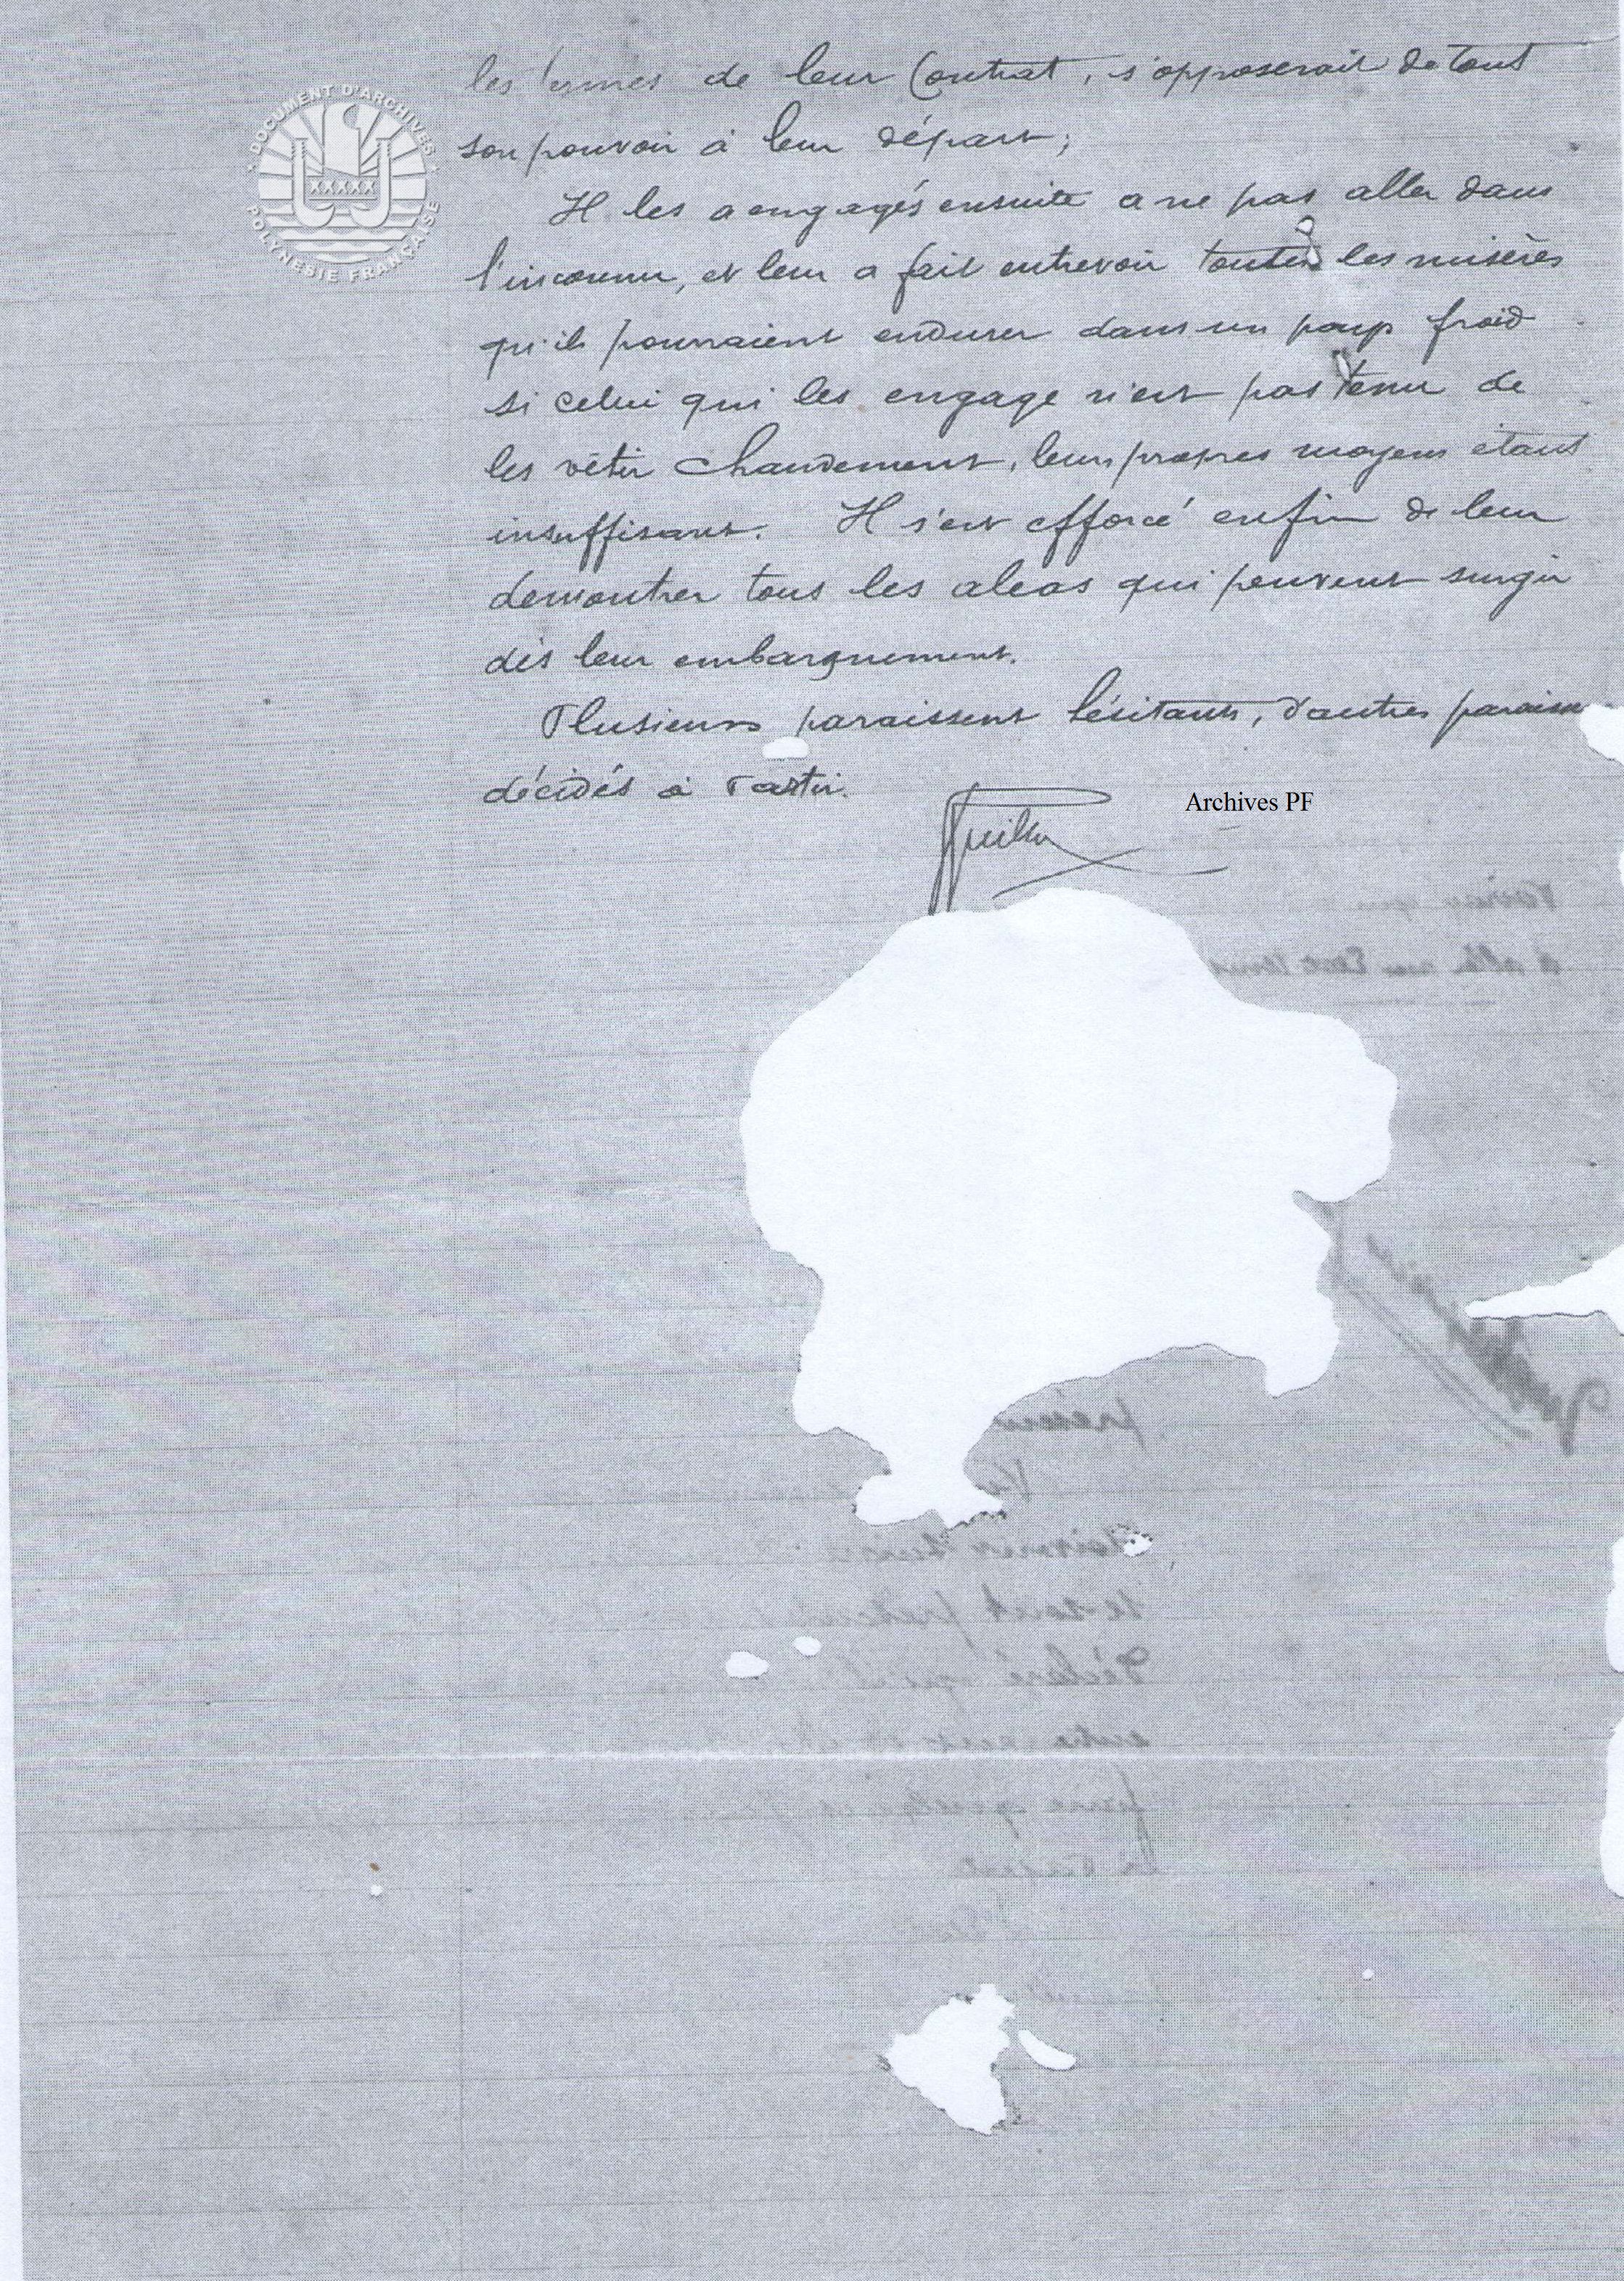 DOCUMENT D'ARCHIVES
POLYNESIE FRANÇAISE
les termes de leur Contrat, s'opposerait de tout
son pouvoir à leur départ;
Il les a engagés ensuite a ne pas aller dans
l'inconnu, et leur a fait entrevoir toutes les misères
qu'ils pourraient endurer dans un pays froid
si celui qui les engage n'est pas tenu de
les vêtir chaudement, leurs propres moyens étant
insuffisants. Il s'est efforcé enfin de leur
demontrer tous les aleas qui peuvent surgir
dès leur embarquement.
Plusieurs paraissent hésitants, d'autres
décidés à Partir.
Archives PF